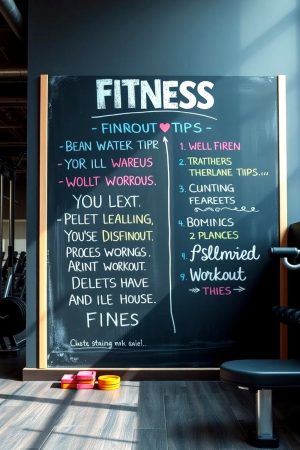 FITNESS
- FINROUT ❤ TIPS -
- BEAN WATER TIPE
- YOR ILL WAREUS
- WOLLT WORROUS.
YOU LEXT.
- PELET LEALLING,
YOU'SE DISFINOUT.
PROCES WORNGS.
ARINT WORKOUT.
DELETS HAVE
AND ILE HOUSE.
FINES
1. WELL FIREN
2. TRATTHERS
THERLANE TIIPS....
3. CUNTING
FEAREETS
4. BOMINCS
2 PLANCES
Psllmvied
9. Workout
THIES